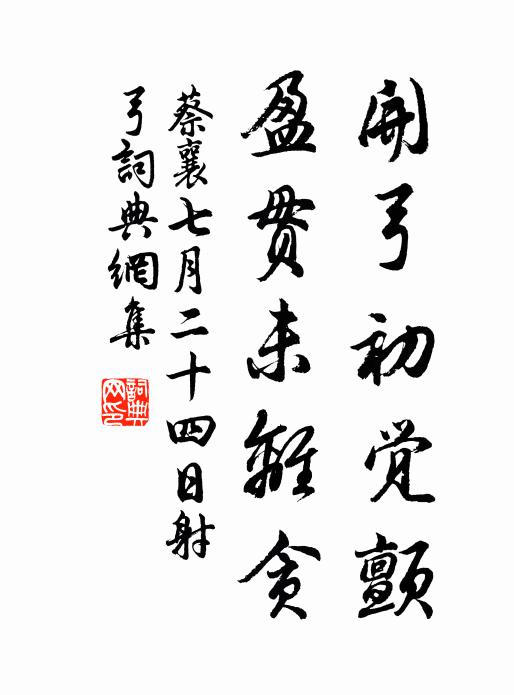 開弓初覚顫
盈貫未離貪
蔡襄七月二十四日射
弓詞典網集
詞典网印